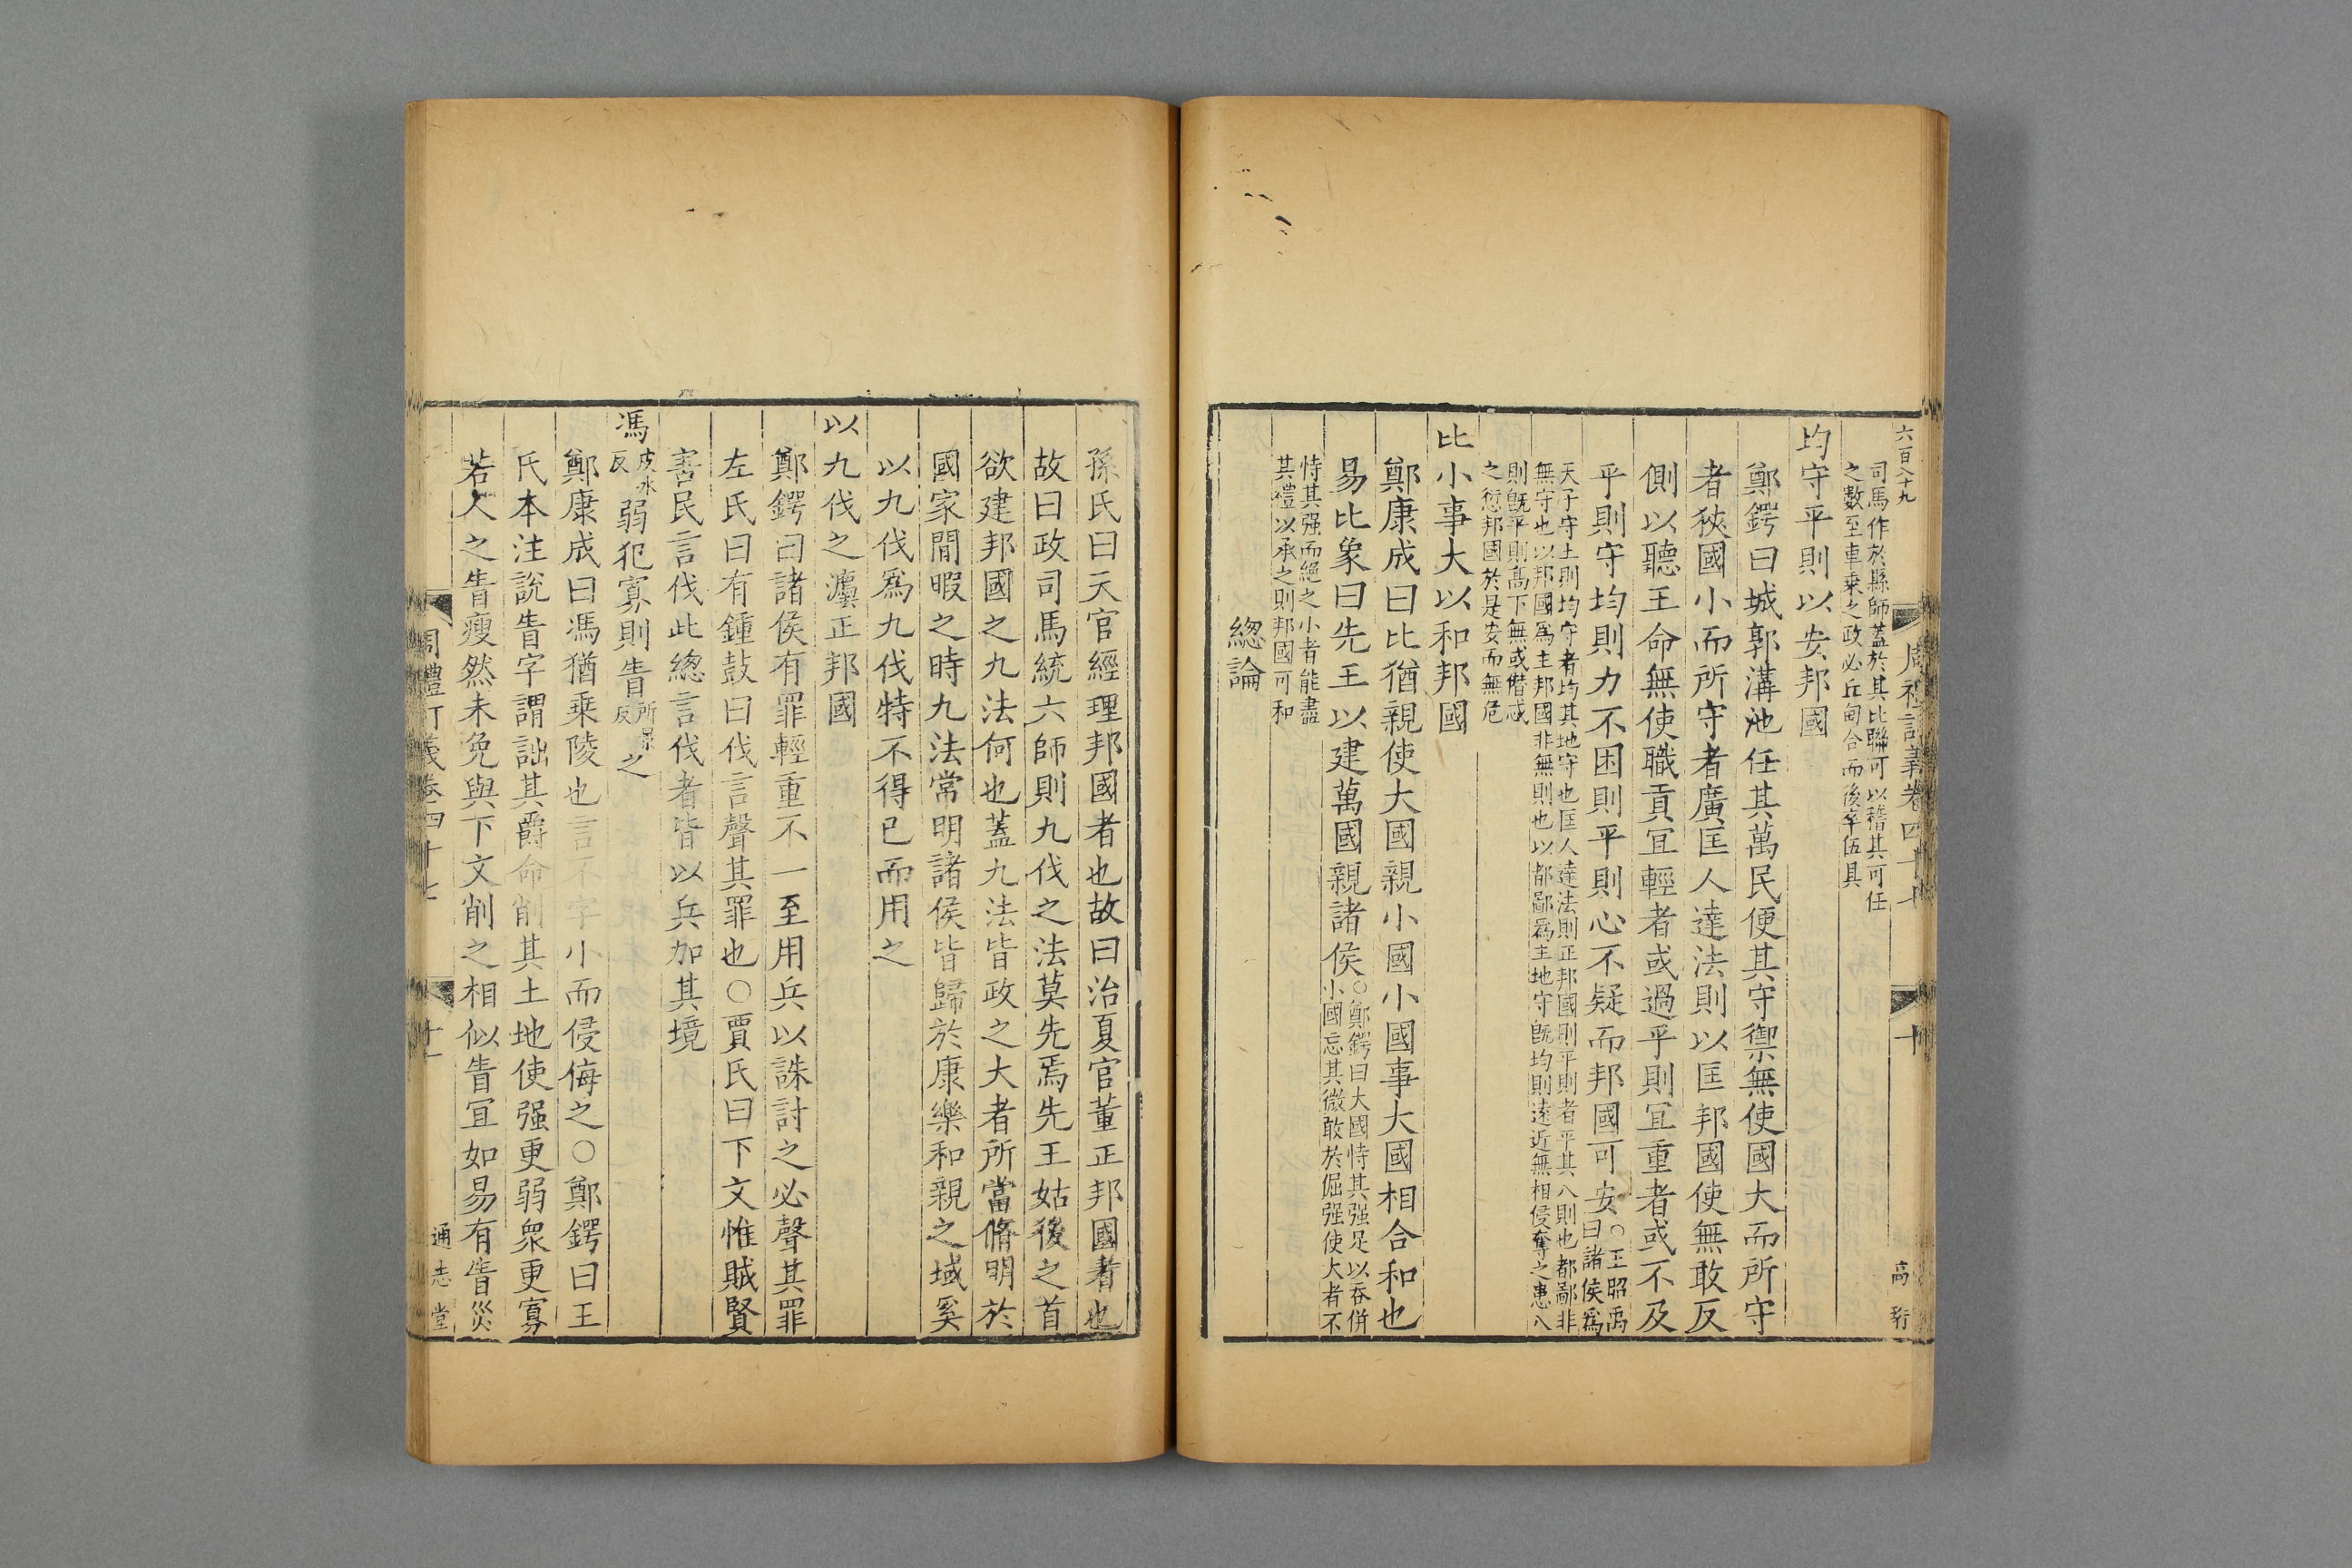 六百八十九
周禮訂義卷四十七
十
高珩
司馬作於縣師蓋於其比聯可以稽其可任
之數至車乘之政必丘甸合而後卒伍具
均守平則以安邦國
鄭鍔曰城郭溝池任其萬民便其守禦無使國大而所守
者狹國小而所守者廣匡人達法則以匡邦國使無敢反
側以聽王命無使職貢宜輕者或過乎則宜重者或不及
乎則守均則力不困則平則心不疑而邦國可安○王昭禹
曰諸侯爲
天子守土則均守者均其地守也匡人達法則正邦國則平則者平其八則也都鄙非
無守也以邦國爲主邦國非無則也以都鄙爲主地守旣均則遠近無相侵奪之患八
則旣平則高下無或僭忒
之愆邦國於是安而無危
比小事大以和邦國
鄭康成曰比猶親使大國親小國小國事大國相合和也
易比象曰先王以建萬國親諸侯○鄭鍔曰大國恃其强足以吞併
小國忘其微敢於倔强使大者不
恃其强而絕之小者能盡
其禮以承之則邦國可和
總論
孫氏曰天官經理邦國者也故曰治夏官董正邦國者也
故曰政司馬統六師則九伐之法莫先焉先王姑後之首
欲建邦國之九法何也蓋九法皆政之大者所當脩明於
國家閒暇之時九法常明諸侯皆歸於康樂和親之域奚
以九伐爲九伐特不得已而用之
以九伐之灋正邦國
鄭鍔曰諸侯有罪輕重不一至用兵以誅討之必聲其罪
左氏曰有鍾鼓曰伐言聲其罪也○賈氏曰下文惟賊賢
害民言伐此總言伐者皆以兵加其境
馮皮冰
反弱犯寡則眚所景
反之
鄭康成曰馮猶乘陵也言不字小而侵侮之○鄭鍔曰王
氏本注說眚字謂詘其爵命削其土地使强更弱衆更寡
若人之眚瘦然未免與下文削之相似眚宜如易有眚災
周禮訂義卷四十七
十一
通志堂